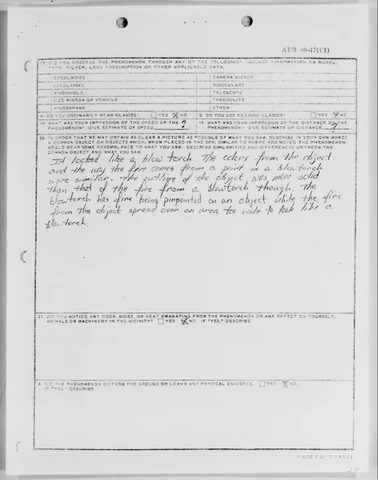 AFR 80-17(C1)
17. DID YOU OBSERVE THE PHENOMENON THROUGH ANY OF THE FOLLOWING? INCLUDE INFORMATION ON MODEL,
TYPE, FILTER, LENS PRESCRIPTION OR OTHER APPLICABLE DATA.
EYEGLASSES CAMERA VIEWER
SUNGLASSES BINOCULARS
WINDSHIELD TELESCOPE
SIDE WINDOW OF VEHICLE THEODOLITE
WINDOWPANE OTHER
A. DO YOU ORDINARILY WEAR GLASSES? YES NO B. DO YOU USE READING GLASSES? YES NO
18. WHAT WAS YOUR IMPRESSION OF THE SPEED OF THE ? 19. WHAT WAS YOUR IMPRESSION OF THE DISTANCE OF THE
PHENOMENON? GIVE ESTIMATE OF SPEED PHENOMENON? GIVE ESTIMATE OF DISTANCE ?
20. IN ORDER THAT WE MAY OBTAIN AS CLEAR A PICTURE AS POSSIBLE OF WHAT YOU SAW, DESCRIBE IN YOUR OWN WORDS
A COMMON OBJECT OR OBJECTS WHICH, WHEN PLACED IN THE SKY, SIMILAR TO WHERE YOU NOTED THE PHENOMENON,
WOULD BEAR SOME RESEMBLANCE TO WHAT YOU SAW. DESCRIBE SIMILARITIES AND DIFFERENCES BETWEEN THE
COMMON OBJECT AND WHAT YOU SAW.
It looked like a blow torch The colors from the object
and the way the fire comes from a point in a blowtorch
were similar. The outline of the object was more solid
than that of the fire from a blowtorch though. The
blowtorch has fire being pinpointed on an object while the fire
from the object spread over an area too wide to look like a
blowtorch.
21. DID YOU NOTICE ANY ODOR, NOISE, OR HEAT EMANATING FROM THE PHENOMENON OR ANY EFFECT ON YOURSELF,
ANIMALS OR MACHINERY IN THE VICINITY? YES NO. IF "YES" DESCRIBE.
A. DID THE PHENOMENON DISTURB THE GROUND OR LEAVE ANY PHYSICAL EVIDENCE. YES NO.
IF "YES" DESCRIBE.